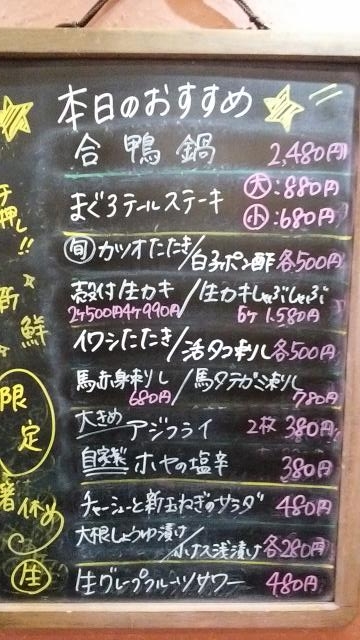 本日のおすすめ
合鴨鍋 2,480円
まぐろテールステーキ 大:880円
小:680円
旬 カツオたたき/白子ポン酢 各500円
殻付生カキ/生カキしゃぶしゃぶ
2ヶ500円4ヶ990円 6ヶ 1,580円
イワシたたき/活タコ刺し 各500円
馬赤身刺し/馬タテガミ刺し
680円 780円
大きめ アジフライ 2枚 380円
自家製 ホヤの塩辛 380円
チャーシューと新玉ねぎのサラダ 480円
大根しょうゆ漬け/小ナス浅漬け 各280円
生グレープフルーツサワー 480円
押し!!
新鮮
限定
箸休め
生